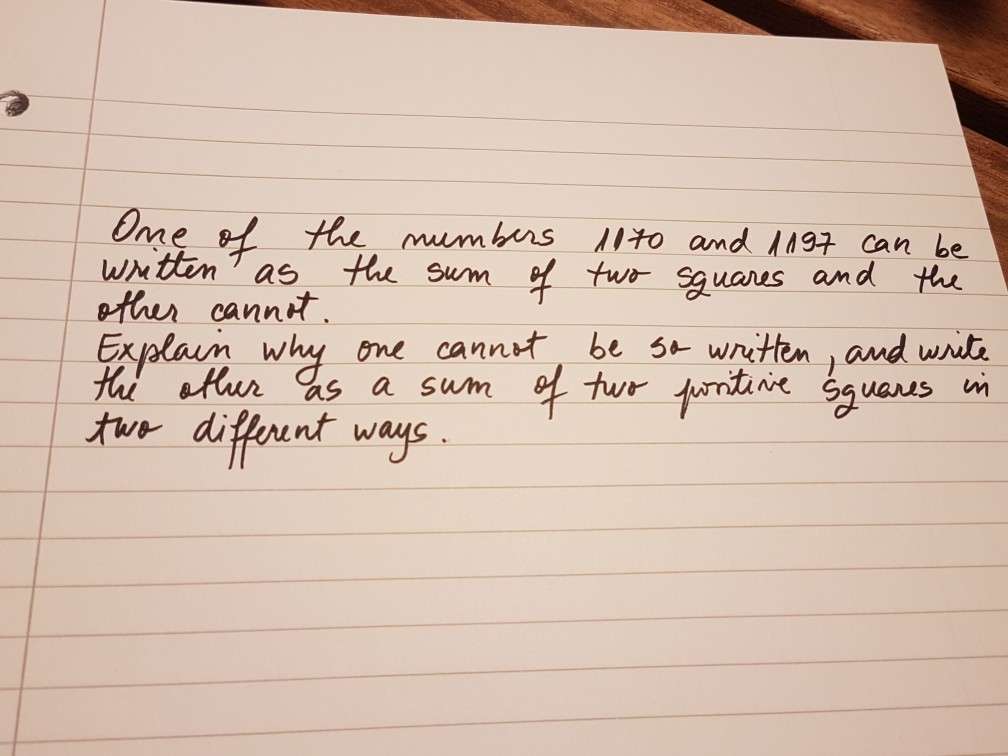 One of the numbers 1170 and 1197 can be
written as the sum of two squares and the
other cannot.
Explain why one cannot be so written, and write
the other as a sum of two positive squares in
two different ways.